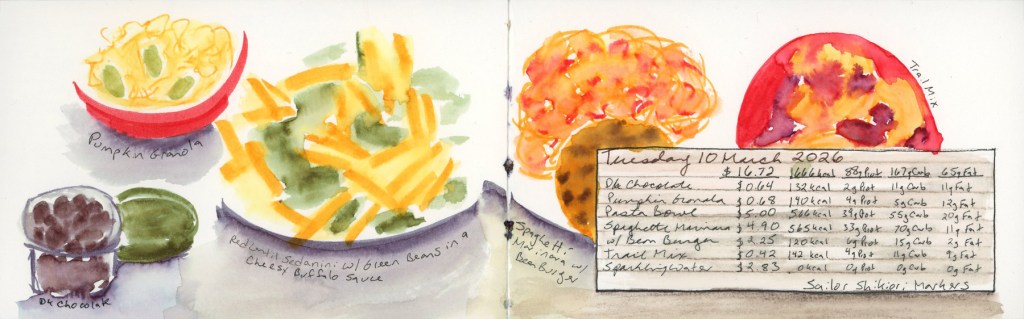 Pumpkin Granola
Dk Chocolate
Red Lentil Sedanini w/ Green Beans in a
Cheesy Buffalo Sauce
Spaghetti
Marinara w/
Bean Burger
Trail Mix
Tuesday 10 March 2026
$16.72 88g Prot 167g Carb 65g Fat
Dk Chocolate $0.64 132kcal 2g Prot 11g Carb 11g Fat
Pumpkin Granola $0.68 190kcal 4g Prot 5g Carb 12g Fat
Pasta Bowl $5.00 39g Prot 55g Carb 20g Fat
Spaghetti Marinara $4.90 565kcal 33g Prot 70g Carb 11g Fat
w/ Bean Burger $2.25 120kcal 6g Prot 15g Carb 2g Fat
Trail Mix $0.42 142kcal 4g Prot 11g Carb 9g Fat
Sparkling Water $2.83 0kcal 0g Prot 0g Carb 0g Fat
Sailor Shikiori Markers